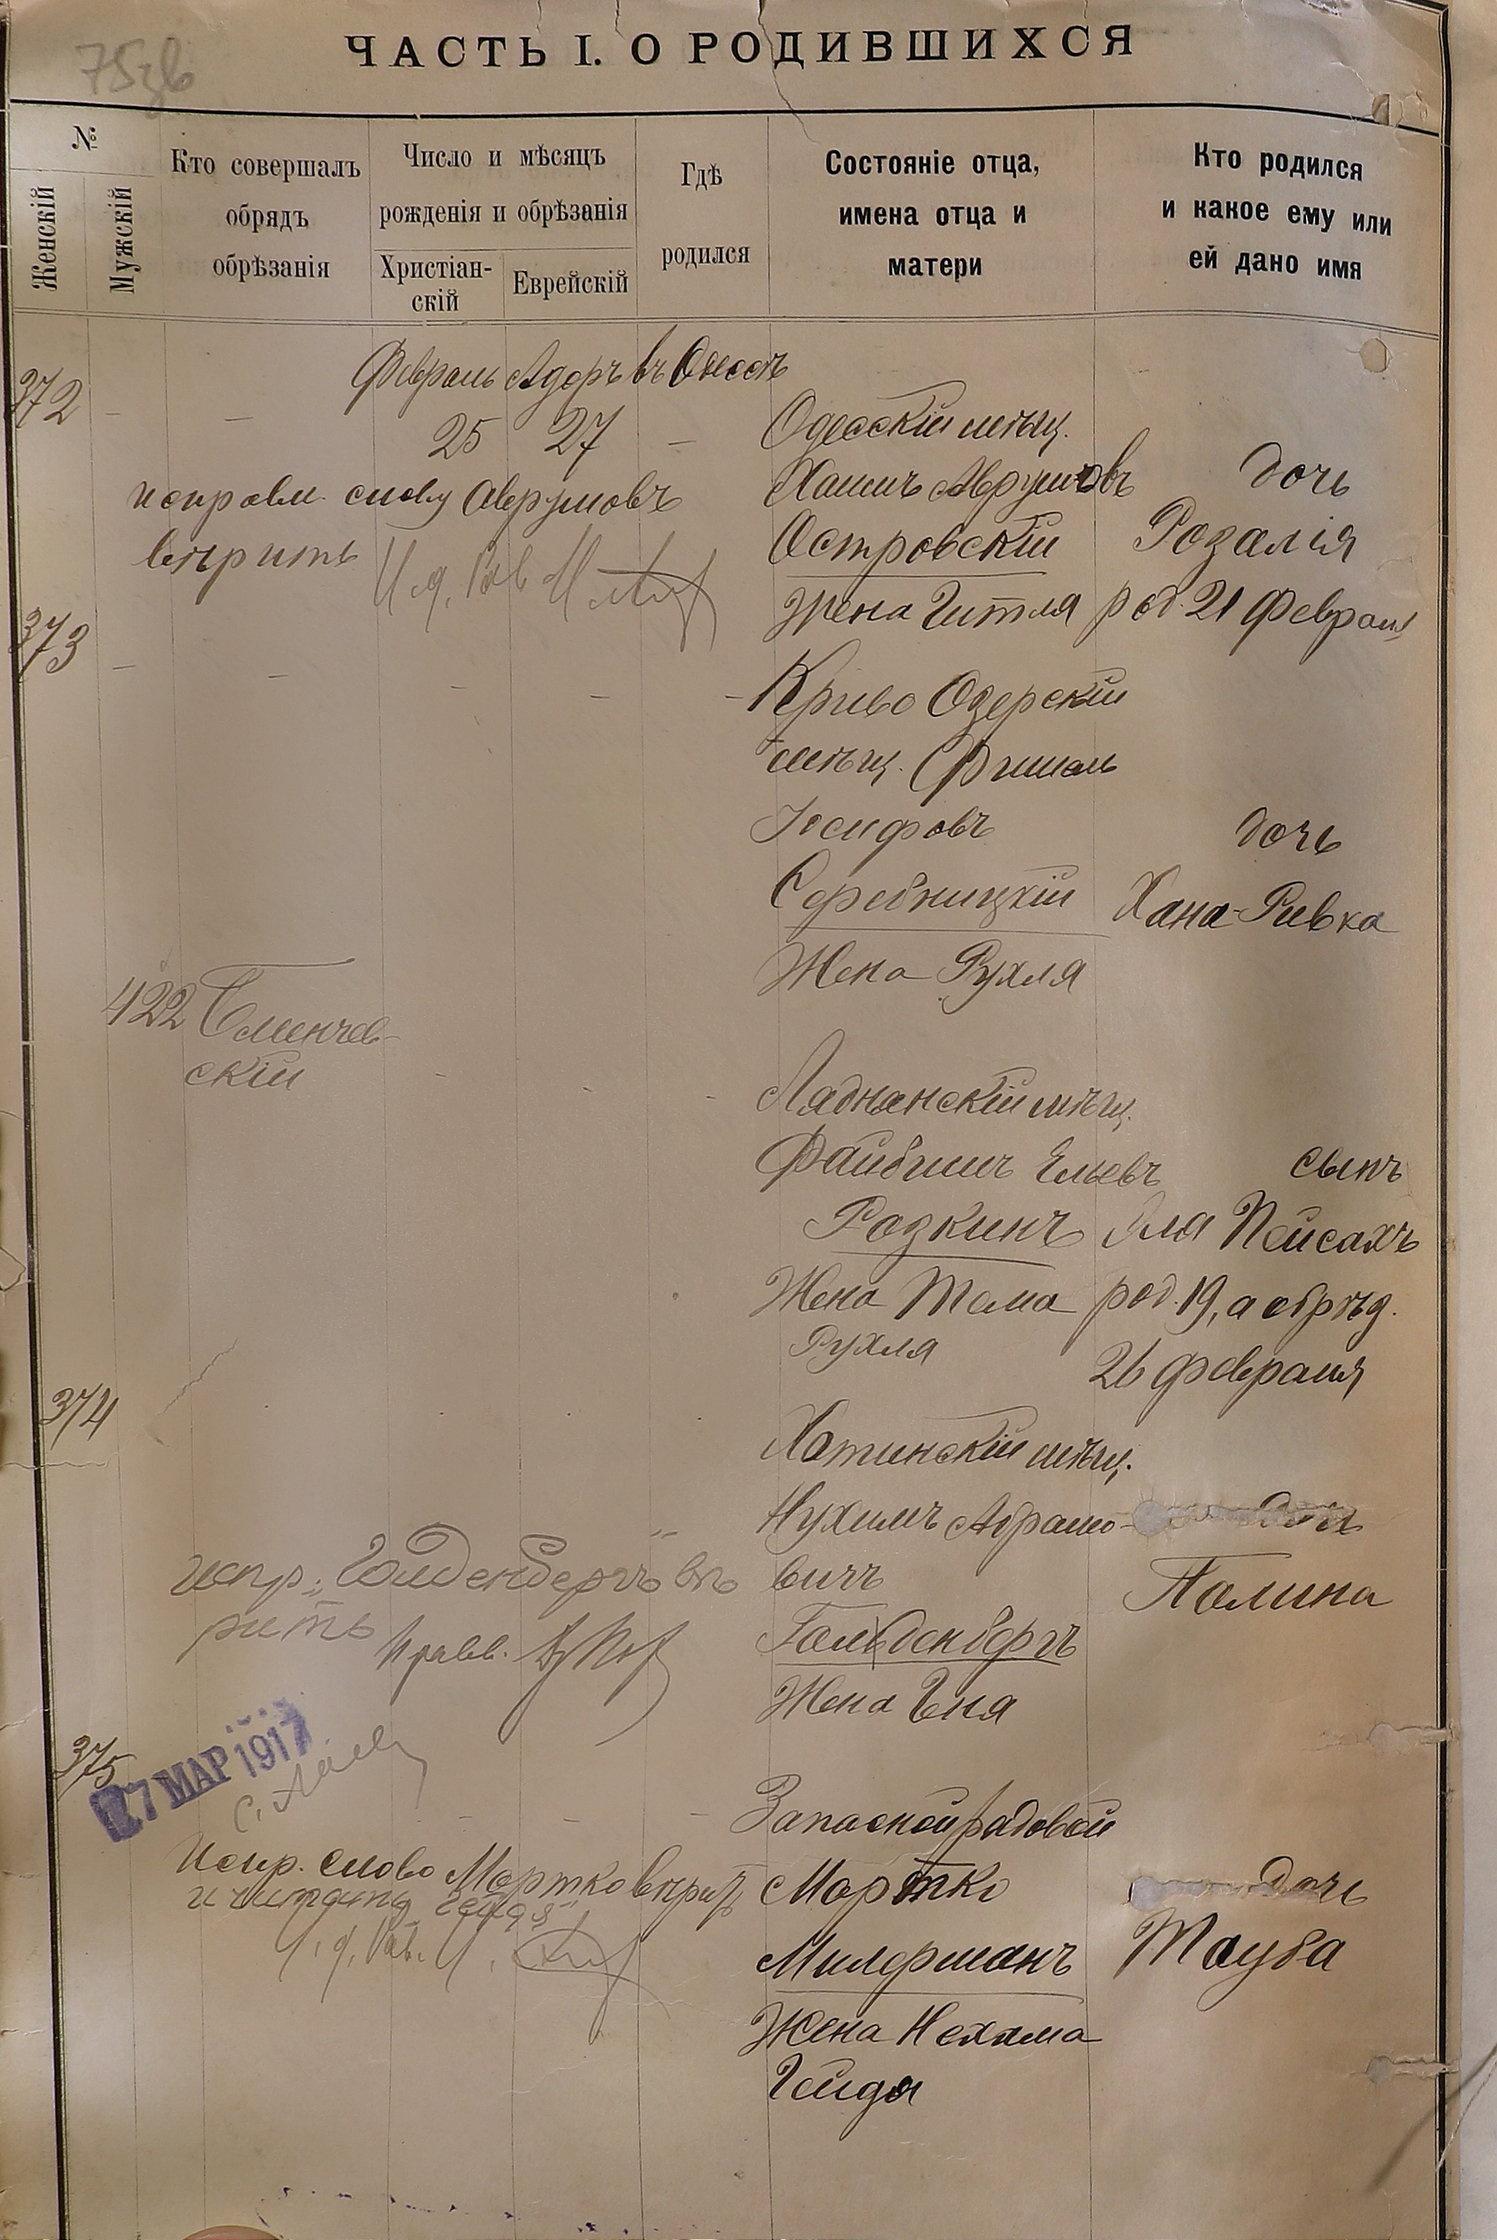 ЧАСТЬ I. О РОДИВШИХСЯ
№
Женскій
Мужскій
Кто совершалъ
обрядъ
обрѣзанія
Число и мѣсяцъ
рожденія и обрѣзанія
Христіан-
скій
Еврейскій
Гдѣ
родился
Состояніе отца,
имена отца и
матери
Кто родился
и какое ему или
ей дано имя
Февраль Адаръ въ Одессѣ
372
25 27
Одесскій мѣщ.
Хаимъ Аврумовъ
дочь
исправл. слову Аврумовъ
вѣрить
Островскій
Розалія
Жена Гитля
род. 21 февраля
373
Криво Озерскій
мѣщ. Фишель
Іосифовъ
дочь
Серебницкій
Хана-Ривка
Жена Рухля
422
Сменчев-
скій
Ляднянскій мѣщ.
Файбишъ Ельевъ
сынъ
Розкинъ
Эля Пейсахъ
Жена Тема
род. 19, а обрѣз.
Рухля
26 февраля
374
Хотинскій мѣщ.
Нухимъ Абрамо-
дочь
вичъ
Полина
испр. „Голденбергъ" вѣ
рить
Гольденбергъ
Жена Геня
17 МАР 1917
375
Запасной рядовой
Испр. слово Мортко вѣрить
и читать „Гейдя"
Мортко
дочь
Милерманъ
Тауба
Жена Нехама
Гейдя